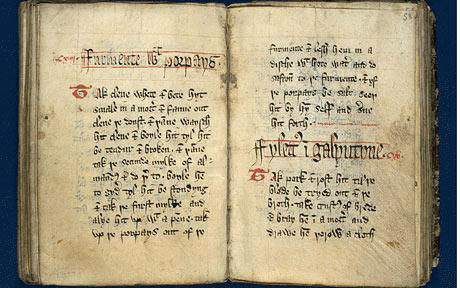 Furmente wt porpays
Tak clene whete & bete hyt
small in a mort & fanne out
clene þe doust & þane waysch
hit clene & boyle hit tyl hit
be tendur & broken & þane
tak þe secunde mylke of al
& do þto boyle hem
to gyd tyl hit be stondyng
& tak þe furst mylke and
alye hit up wt a penne tak
up þe porpays out of þe
furmente & lesh hem in a
disshe wt hote wat and do
safron to þe furmente & yf
þe porpays be salt seeþ
hit by hy self and sue
hit forth
Fylet i galyntyne
Tak pork & rost hit til þe
blode be tryed out & þe
broth take crustes of brede
& bray hem i a mort and
drawe hem þorow a cloth